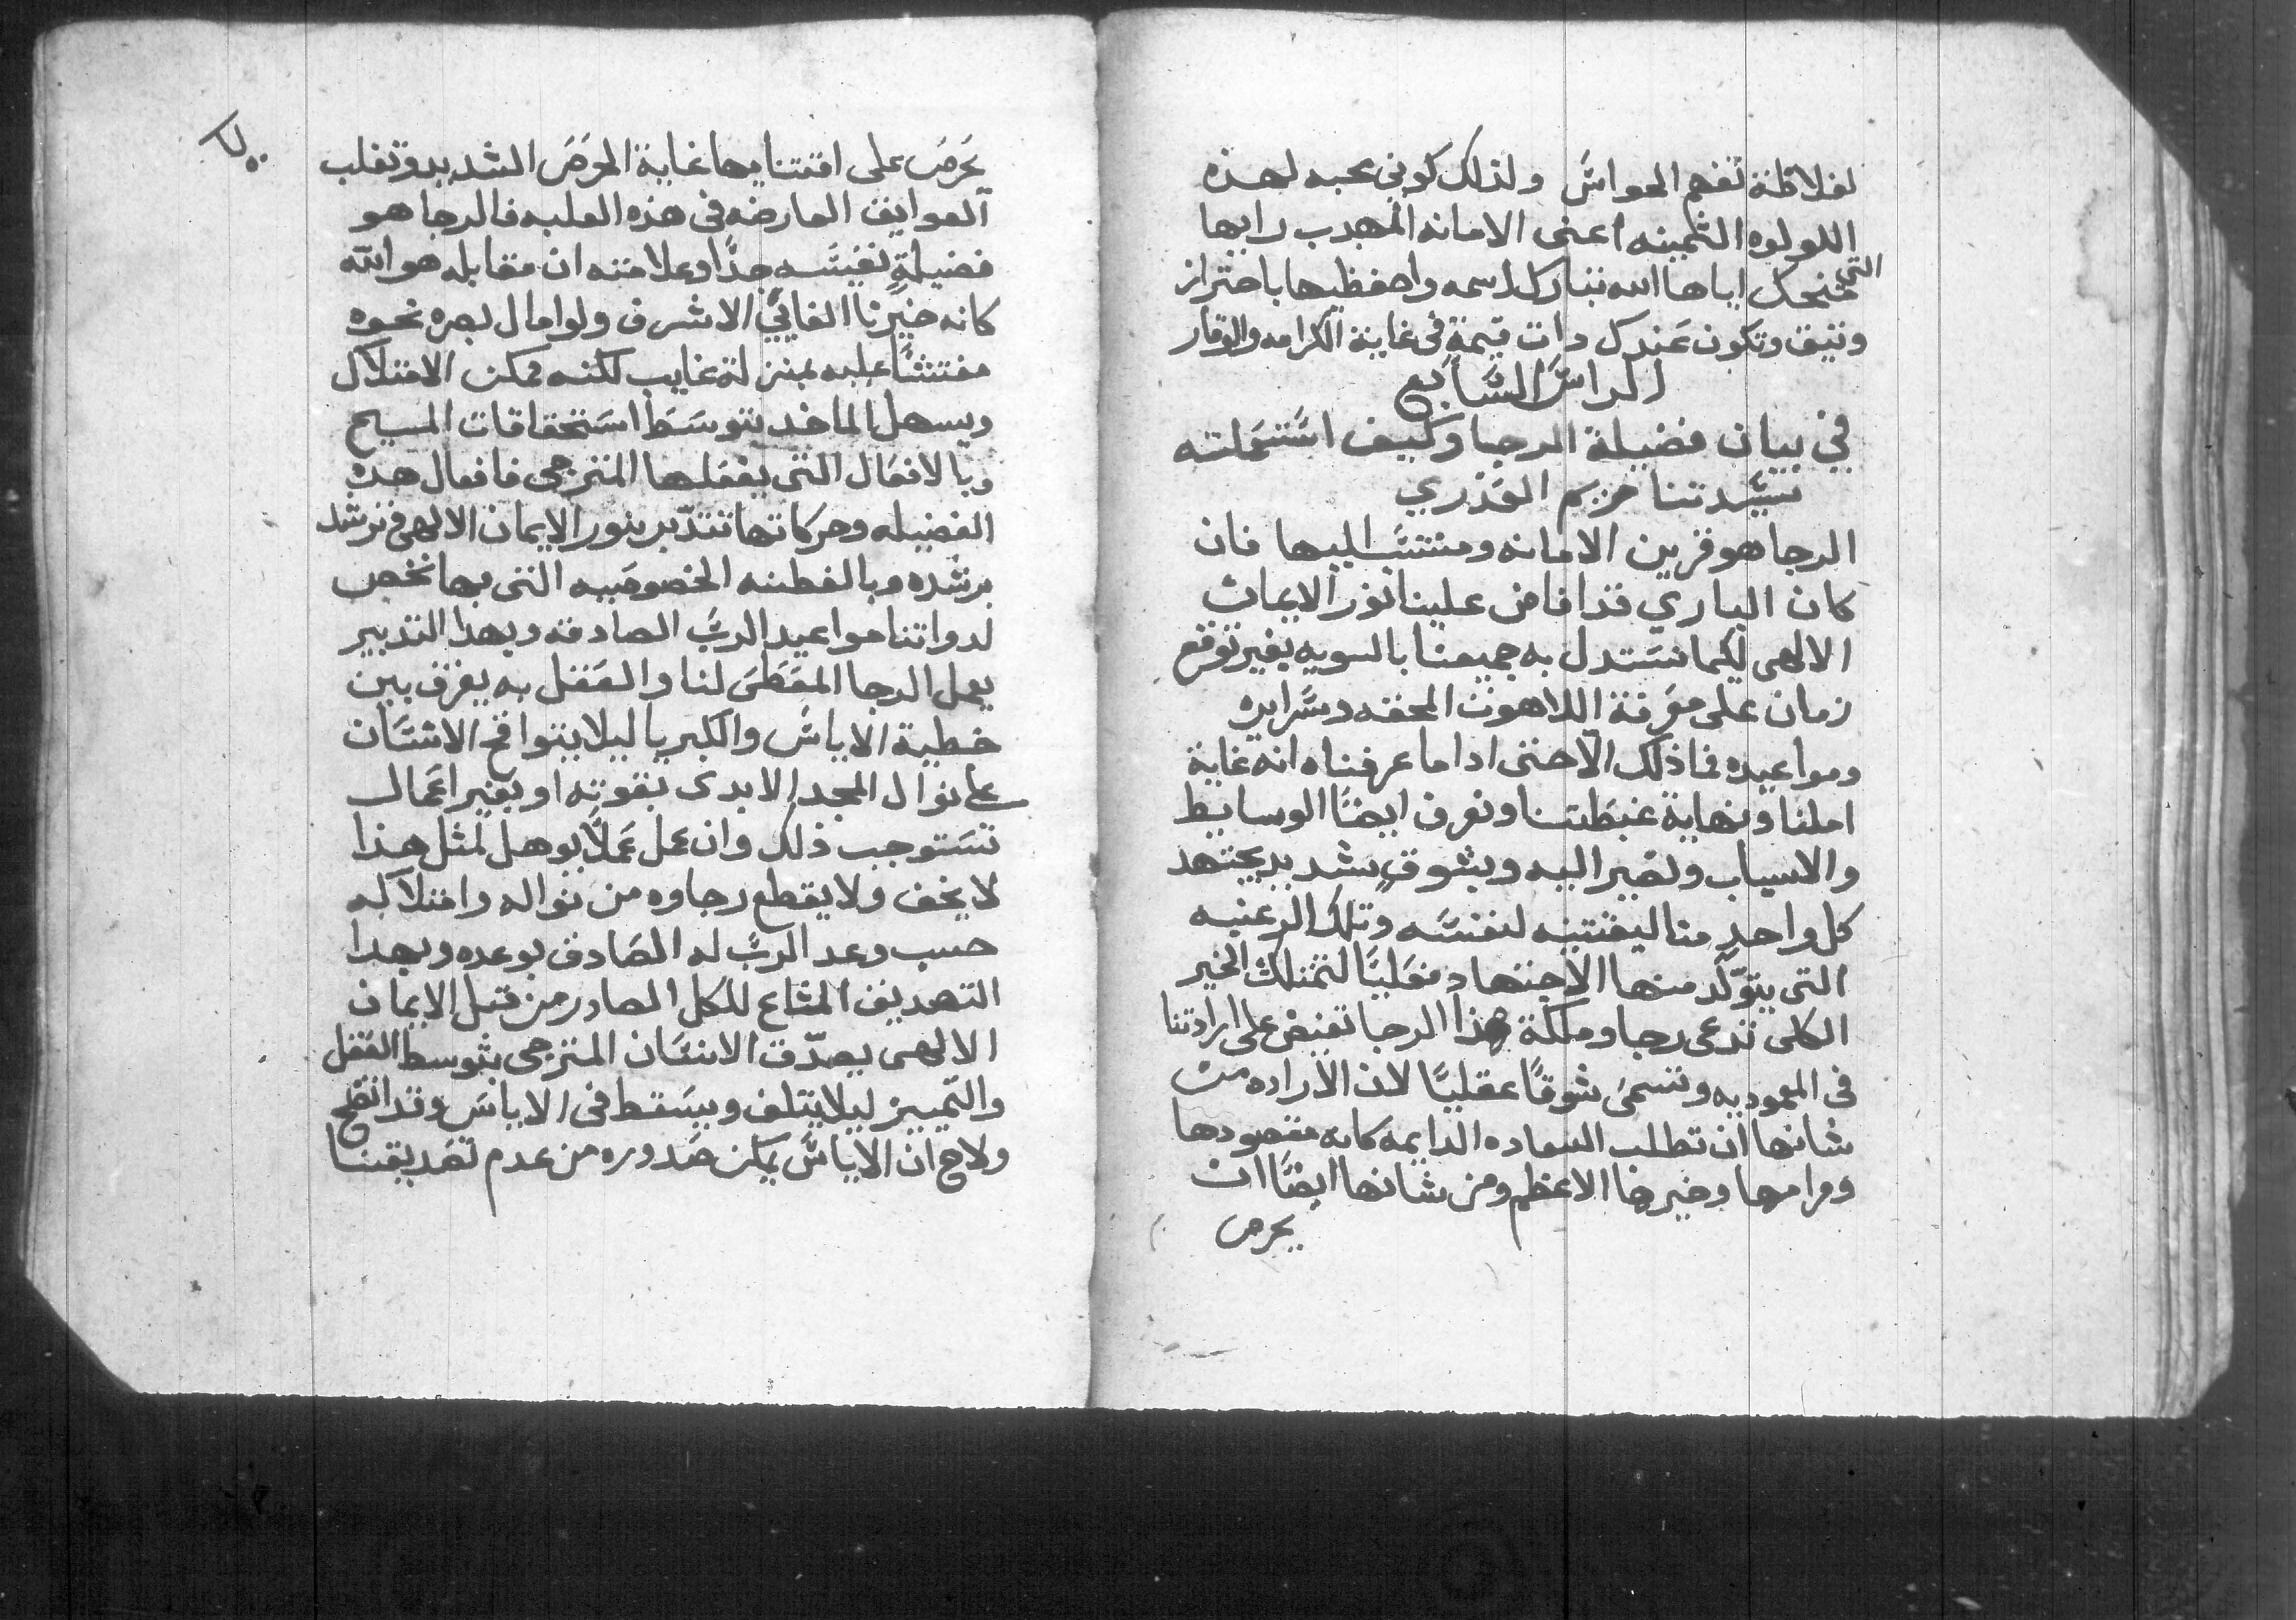 لغلاظة تفهم الحواس ولذلك كوني محبه لهذه
اللولوه الثمينه اعني الامانه المهدب رايها
التي منحكِ اياها الله تبارك اسمه واحفظيها باحتراز
وتيق وتكون عندكِ دات قيمةٍ في غاية الكرامه والوقار
الراس السابع
في بيان فضيلة الرجا وكيف استعملته
سيدتنا مريم العذري
الرجا هو قرين الامانه ومنتسب اليها فان
كان الباري قد افاض علينا نور الايمان
الالهي لكيما نستدل به جميعنا بالسويه بغير توقع
زمان على معرفة اللاهوت المحقه وسرايره
ومواعيده فما ذلك الّا حتى ادا ما عرفناه انه غاية
املنا ونهاية غبطتنا ونعرف ايضًا الوسايط
والاسباب ونصير اليه وبشوقٍ شديد يجتهد
كل واحدٍ منا ليقتنيه لنفسه وتلك الرغبه
التي يتولّد منها الاجتهاد مفعليًا لتمتلك الخير
الكلي تدعى رجا وملكة هذا الرجا تفيض على ارادتنا
في المعموديه وتسمى شوقًا عقليًا لان الاراده من
شانها ان تطلب السعاده الدايمه كانه مقصودها
ومرامها وخيرها الاعظم ومن شانها ايضًا ان
يحرص
يحرص على اقتنايها غاية الحرص الشديد وتغلب
العوايق العارضه في هذه الغلبه فالرجا هو
فضيلةٍ نفيسه جدًا وعلامته ان مقابله هو الله
كانه خيرنا الفايق الاشرف ولو امال بصره نحوه
مفتشًا عليه بمنزلة غايب لكنه ممكن الامتلاك
ويسهل الماخد بتوسط استحقاقات المسيح
وبالافعال التي يفعلها المترجي فافعال هده
الفضيله وحركاتها تتدبر بنور الايمان الالهي فترشد
برشده وبالفطنه الخصوصيه التي بها نخص
لدواتنا مواعيد الربّ الصادقه وبهدا التدبير
يعمل الرجا المعطى لنا والعقل به يفرق بين
خطية الاياس والكبريا ليلا يتواقح الانسان
على نوال المجد الابدي بقوته او بغير اعمال
تستوجب ذلك وان عمل عملًا يوهل لمثل هدا
لا يخف ولا يقطع رجاوه من نواله وامتلاكه
حسب وعد الربّ له الصادق بوعده وبهدا
التصديق المشاع للكل الصادر من قبل الايمان
الالهي يصدّق الانسان المترجي بتوسط العقل
والتمييز ليلا يتلف ويسقط في الاياس وقد اتضح
ولاح ان الاياس يمكن صدوره من عدم تصديقنا